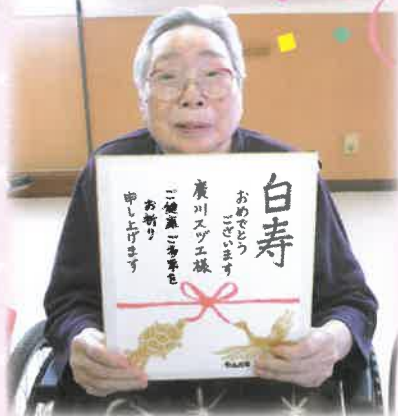 白寿
おめでとう
ございます
廣川スヅエ様
ご健康ご多幸を
お祈り
申し上げます